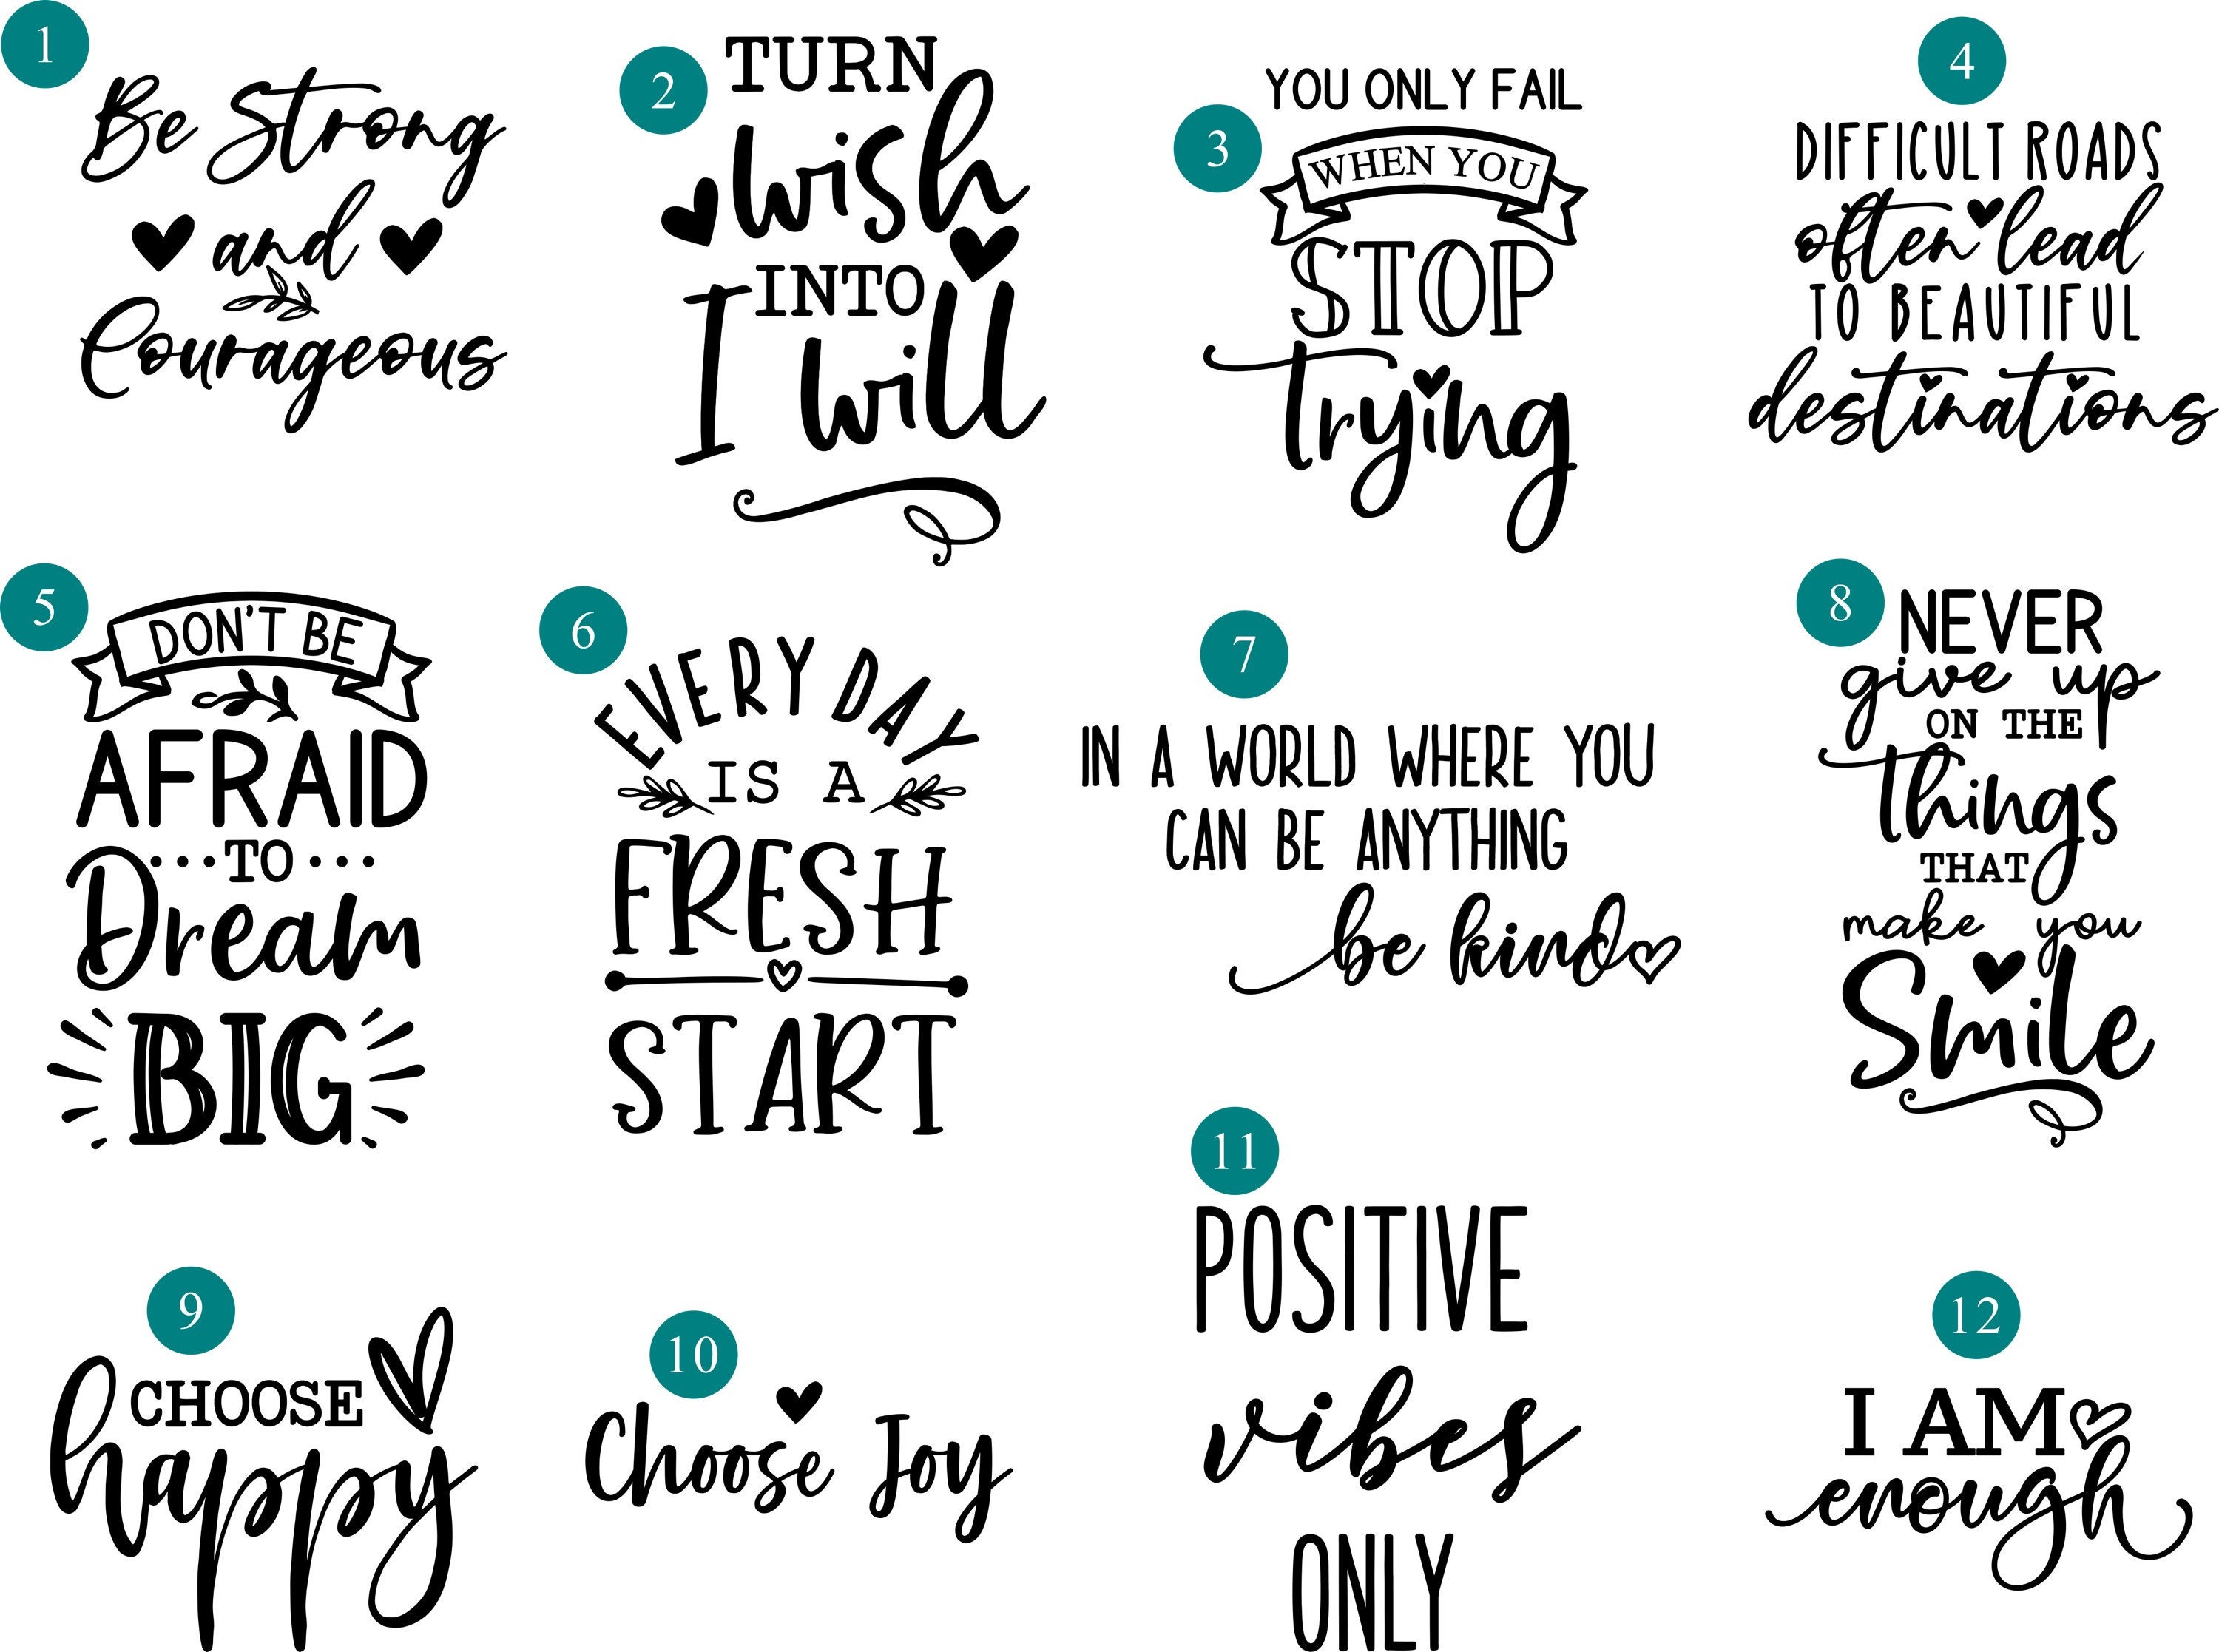 1
Be Strong
and
Courageous
2
TURN
wish
INTO
I will
3
YOU ONLY FAIL
WHEN YOU
STOP
trying
4
DIFFICULT ROADS
often lead
TO BEAUTIFUL
destinations
5
DON'T BE
AFRAID
TO
Dream
BIG
6
EVERY DAY
IS A
FRESH
START
7
IN A WORLD WHERE YOU
CAN BE ANYTHING
be kind
8
NEVER
give up
ON THE
things
THAT
make you
Smile
9
CHOOSE
happy
10
Choose Joy
11
POSITIVE
vibes
ONLY
12
I AM
enough